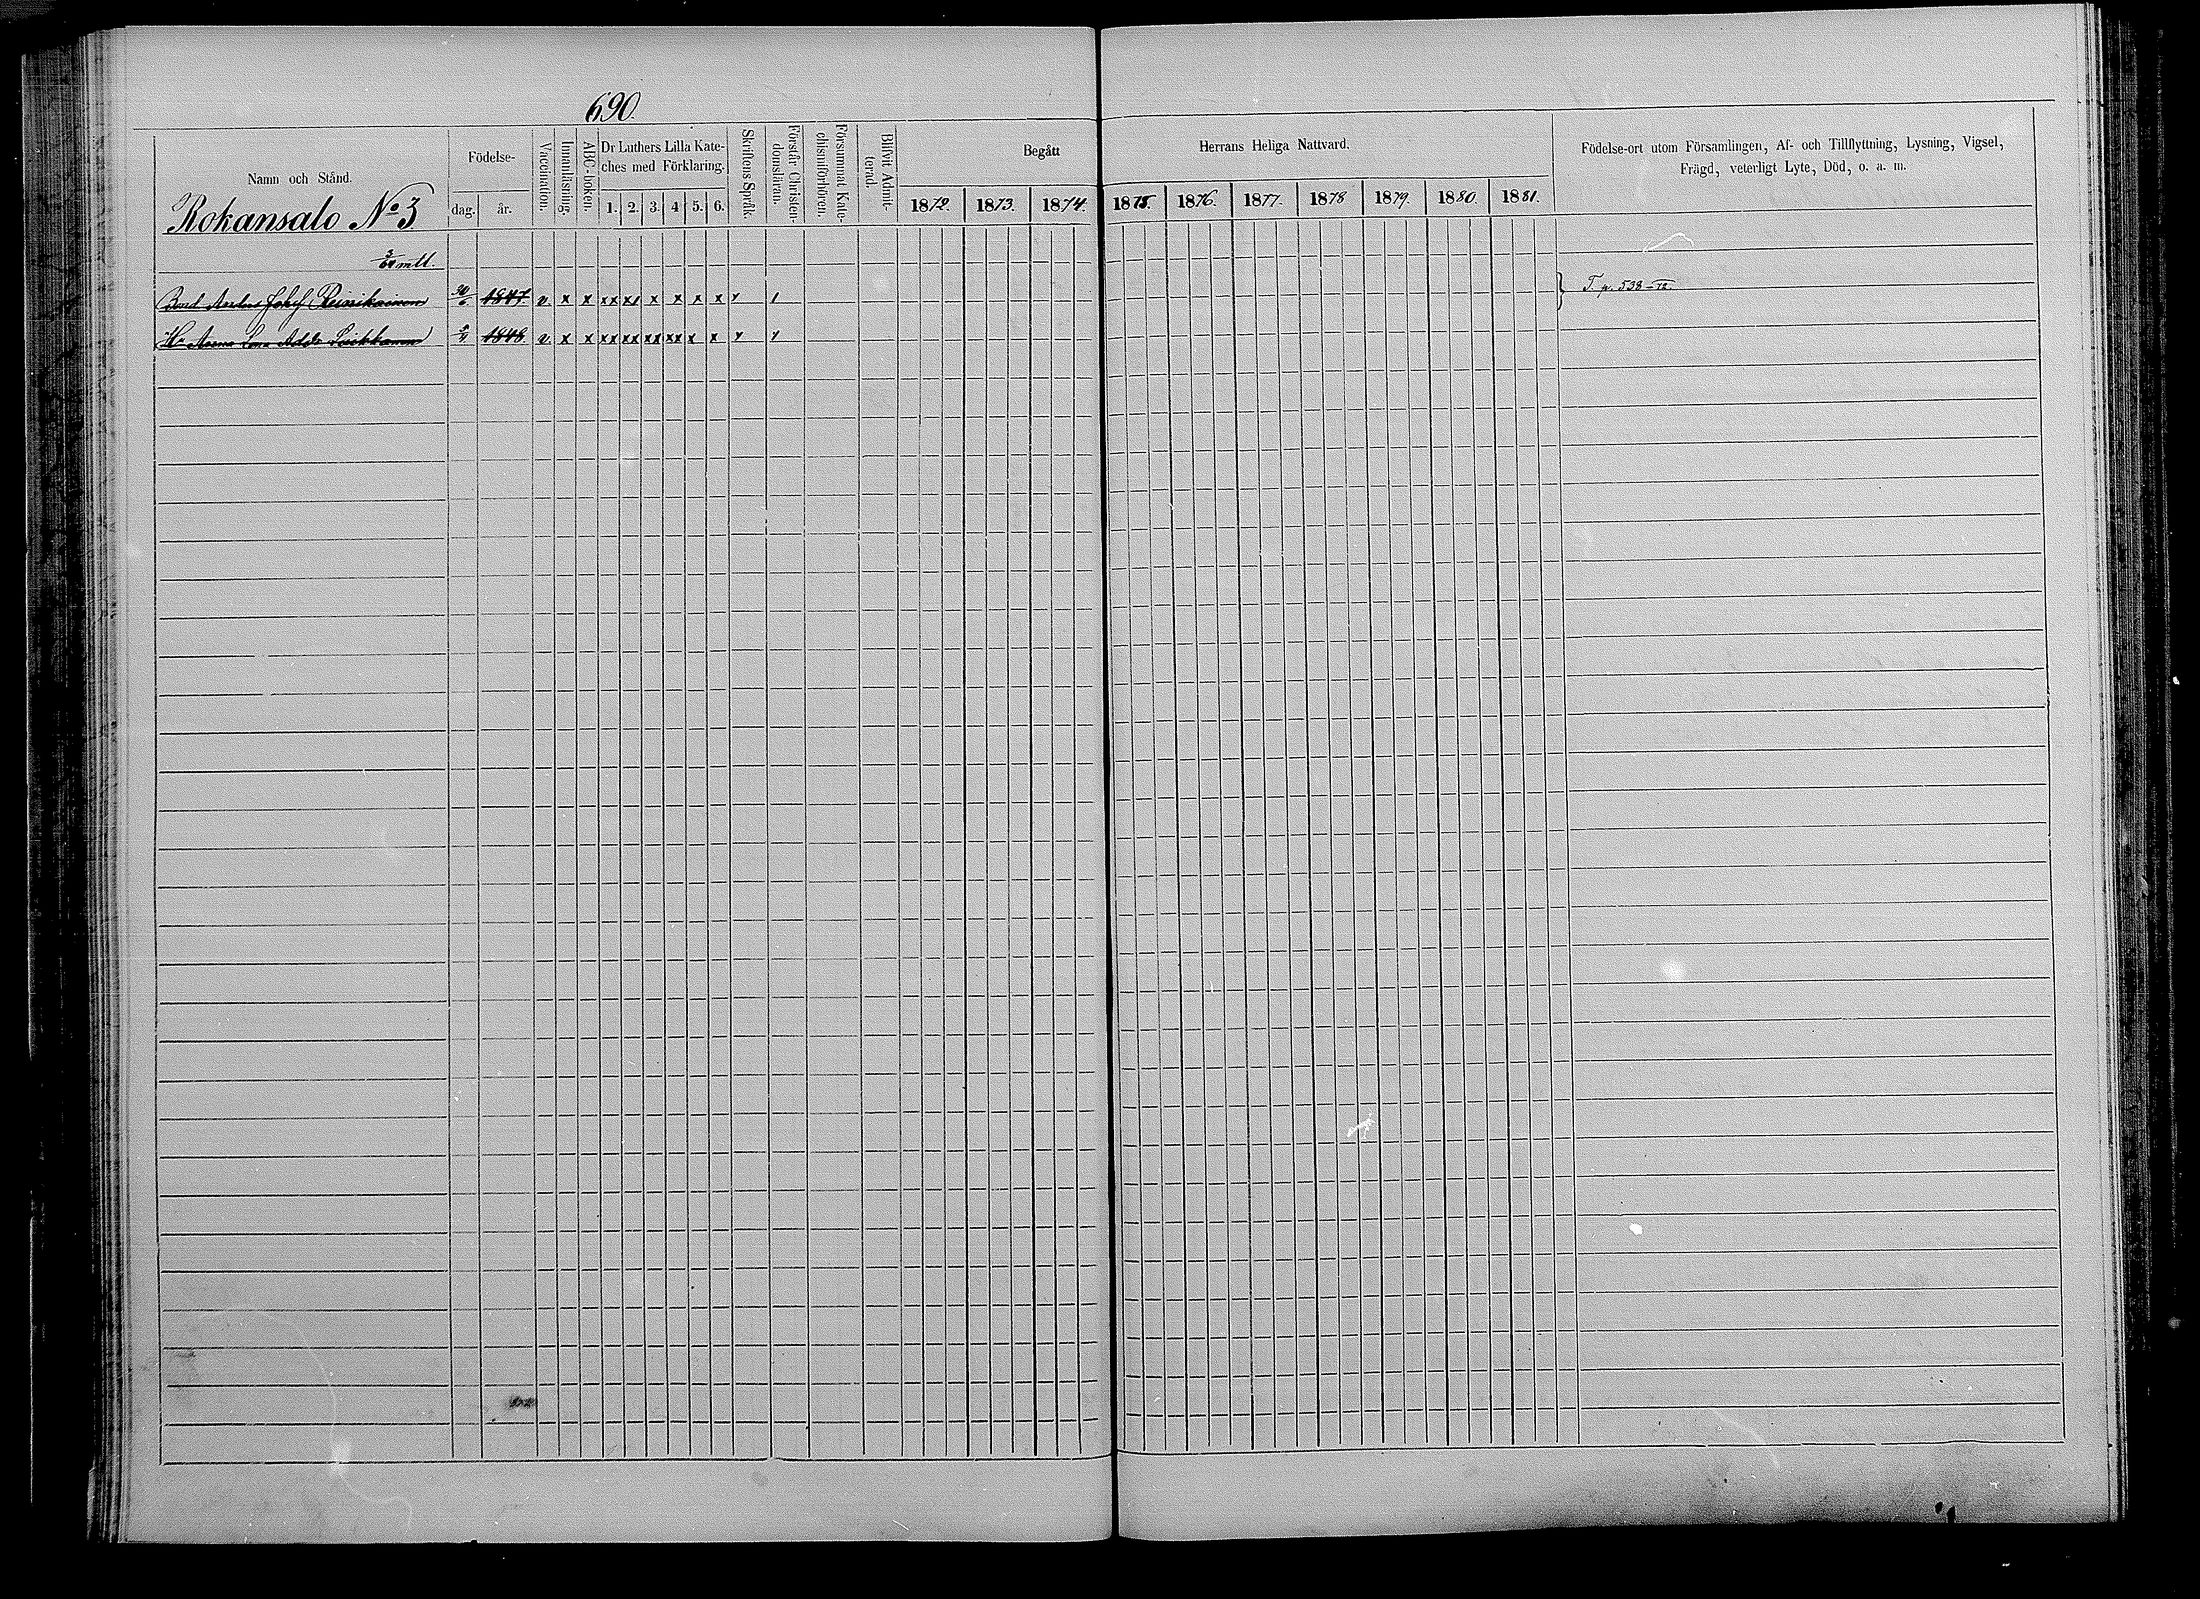 690.
Namn och Stånd.
Födelse-
dag.
år.
Vaccination.
Innanläsning.
ABC-boken.
Dr Luthers Lilla Kate-
ches med Förklaring.
1. 2. 3. 4 5. 6.
Skriftens Språk.
Förstår Christen-
domsläran.
Försummat Kate-
chismiförhören.
Blifvit Admit-
terad.
Begått
Herrans Heliga Nattvard.
1872. 1873. 1874. 1875. 1876. 1877. 1878 1879. 1880. 1881.
Födelse-ort utom Församlingen, Af- och Tillflyttning, Lysning, Vigsel,
Frägd, veterligt Lyte, Död, o. a. m.
Rokansalo No 3
mtl.
Bond. Anders Josef Reinikainen 30/6 1847 v. x x xx x1 x x x x 1
T. p. 538-72.
Hu Anna Lena 1848 v. x x xx xx xx xx x x